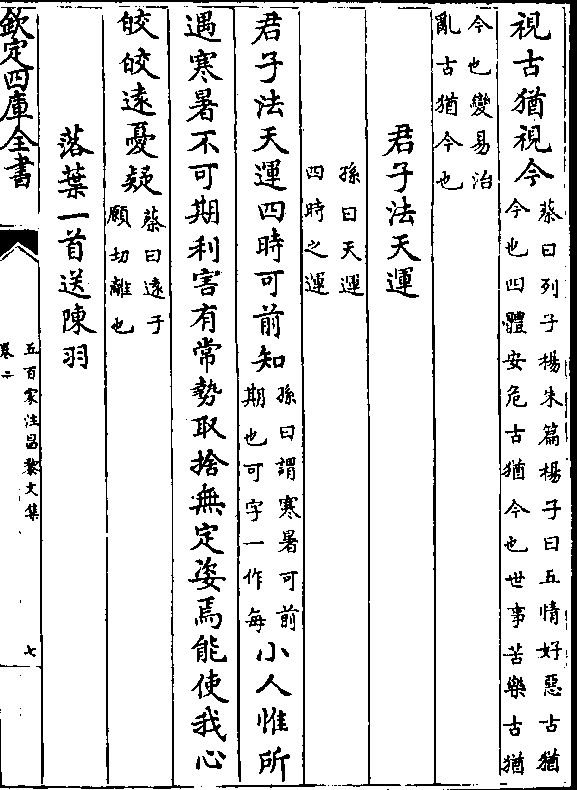 視古猶視今蔡曰列子楊朱篇楊子曰五情好惡古猶
今也四體安危古猶今也世事苦樂古猶
今也變易治
亂古猶今也
君子法天運
孫曰天運
四時之運
君子法天運四時可前知孫曰謂寒暑可前
期也可字一作每小人惟所
遇寒暑不可期利害有常勢取捨無定姿焉能使我心
皎皎遠憂疑蔡曰遠于
願切離也
落葉一首送陳羽
欽定四庫全書
五百家注昌黎文集
卷二
七